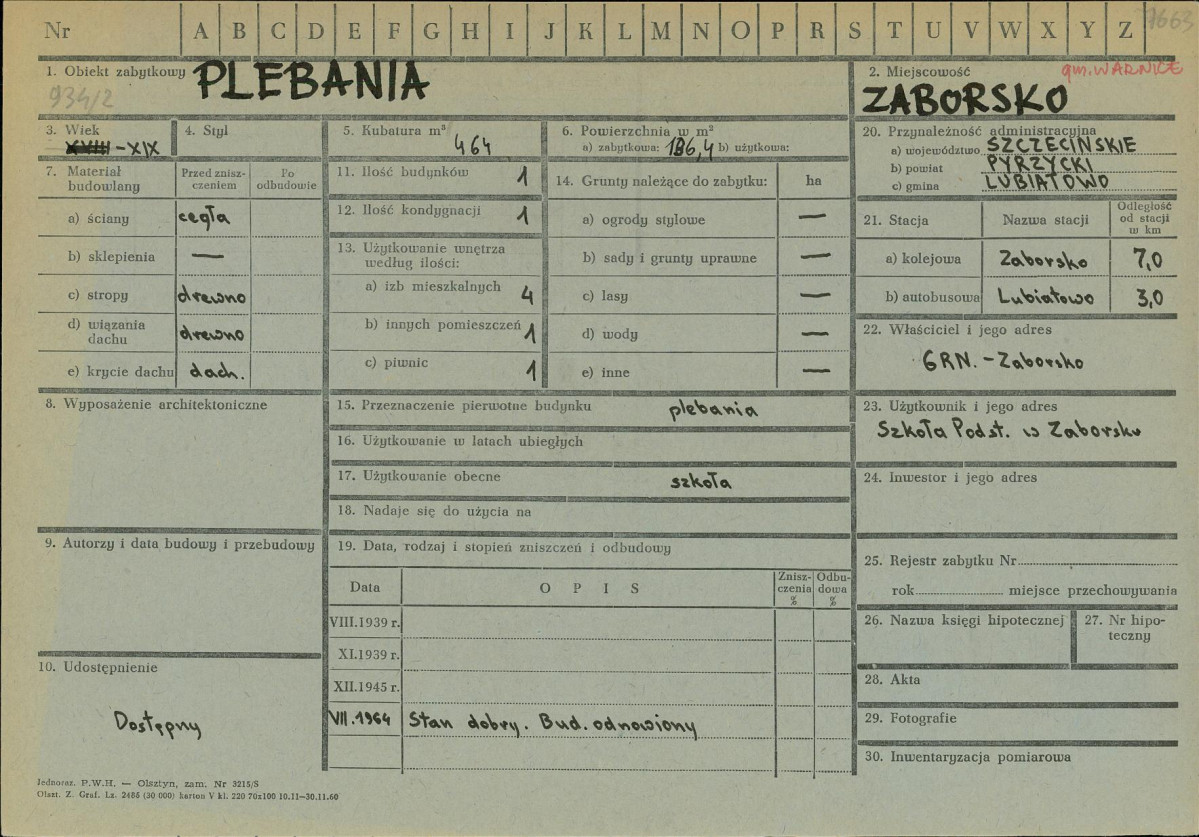 Nr A B C D E F G H I J K L M N O P R S T U V W X Y Z 7663
1. Obiekt zabytkowy PLEBANIA
934/2
2. Miejscowość gm. WARNICE
ZABORSKO
3. Wiek
XVIII - XIX
4. Styl
5. Kubatura m³
464
6. Powierzchnia w m²
a) zabytkowa: 136,4 b) użytkowa:
20. Przynależność administracyjna
a) województwo SZCZECIŃSKIE
b) powiat PYRZYCKI
c) gmina LUBIATOWO
7. Materiał budowlany
Przed zniszczeniem
Po odbudowie
a) ściany cegła
b) sklepienia —
c) stropy drewno
d) wiązania dachu drewno
e) krycie dachu dach.
11. Ilość budynków 1
12. Ilość kondygnacji 1
13. Użytkowanie wnętrza
według ilości:
a) izb mieszkalnych 4
b) innych pomieszczeń 1
c) piwnic 1
14. Grunty należące do zabytku: ha
a) ogrody stylowe —
b) sady i grunty uprawne —
c) lasy —
d) wody —
e) inne —
21. Stacja Nazwa stacji Odległość od stacji w km
a) kolejowa Zaborsko 7,0
b) autobusowa Lubiatowo 3,0
22. Właściciel i jego adres
GRN. - Zaborsko
8. Wyposażenie architektoniczne
15. Przeznaczenie pierwotne budynku plebania
16. Użytkowanie w latach ubiegłych
17. Użytkowanie obecne szkoła
18. Nadaje się do użycia na
23. Użytkownik i jego adres
Szkoła Podst. w Zaborsku
24. Inwestor i jego adres
9. Autorzy i data budowy i przebudowy
19. Data, rodzaj i stopień zniszczeń i odbudowy
Data O P I S Zniszczenia % Odbudowa %
VIII.1939 r.
XI.1939 r.
XII.1945 r.
VII.1964 Stan dobry. Bud. odnowiony
25. Rejestr zabytku Nr
rok miejsce przechowywania
26. Nazwa księgi hipotecznej
27. Nr hipoteczny
28. Akta
29. Fotografie
30. Inwentaryzacja pomiarowa
10. Udostępnienie
Dostępny
Jednoraz. P.W.H. — Olsztyn, zam. Nr 3215/S
Olszt. Z. Graf. Lz. 2486 (30 000) karton V kl. 220 70x100 10.11—30.11.60